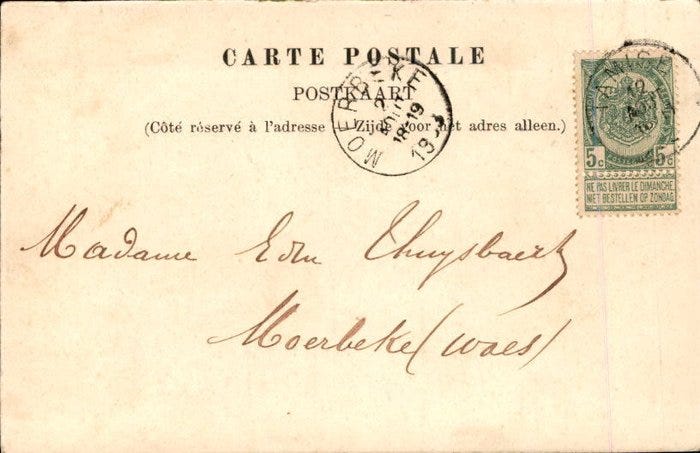 CARTE POSTALE
POSTKAART
(Côté réservé à l'adresse — Zijde voor het adres alleen.)
MOERBEKE
2
AOUT
18-19
19
TAMISE
12
AOUT
5c 5c
NE PAS LIVRER LE DIMANCHE
NIET BESTELLEN OP ZONDAG
Madame Edm Thuysbaert
Moerbeke (Waes)